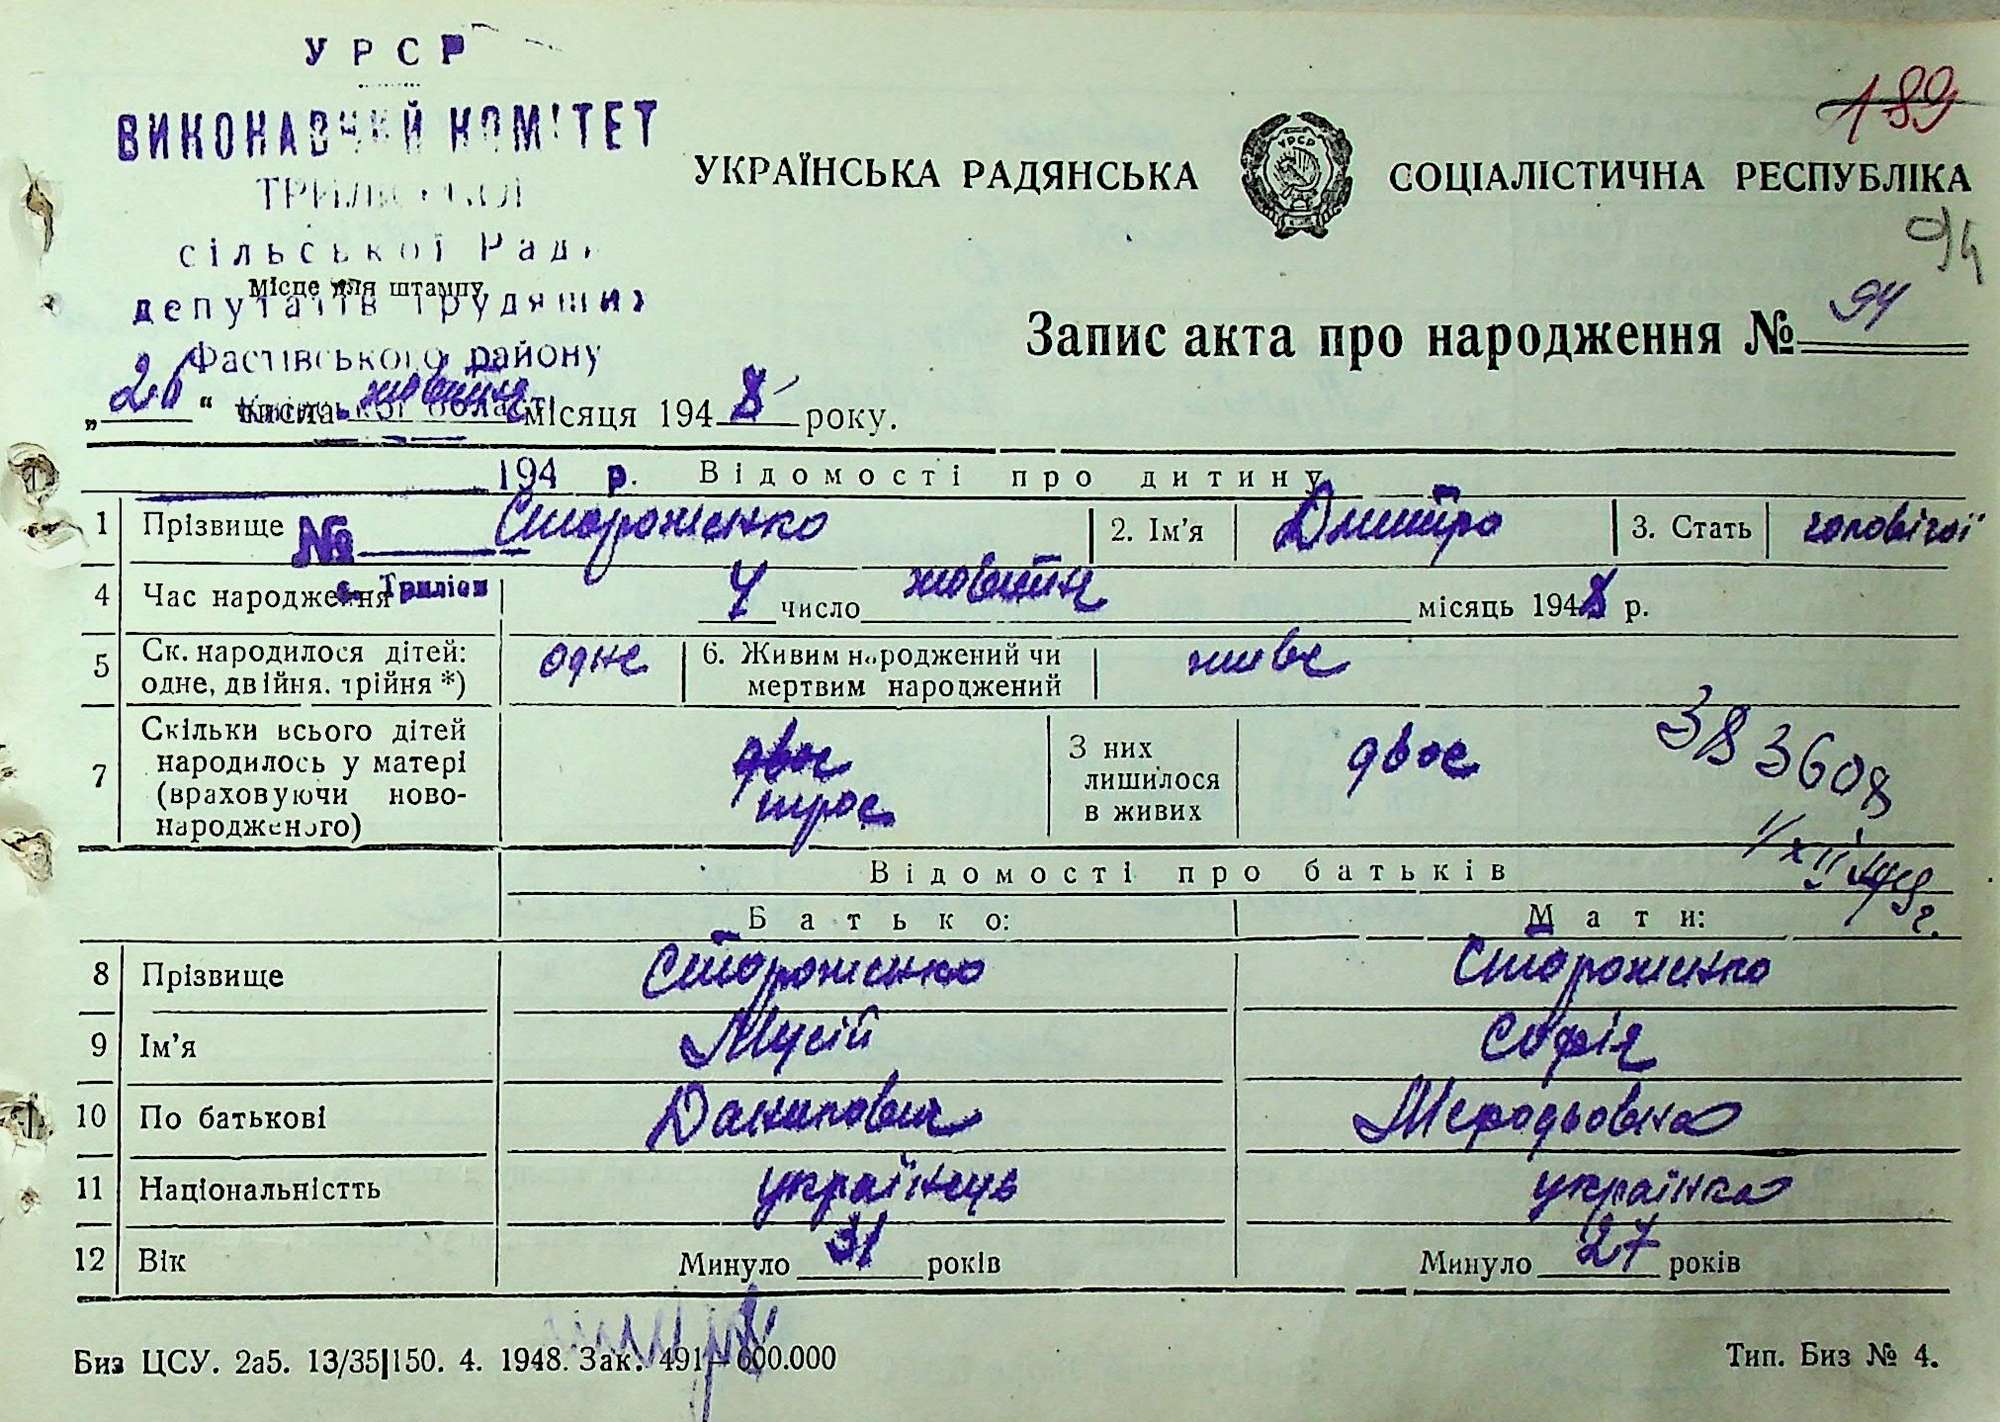 УРСР
189
ВИКОНАВЧИЙ КОМІТЕТ
УКРАЇНСЬКА РАДЯНСЬКА СОЦІАЛІСТИЧНА РЕСПУБЛІКА
сільської Ради
94
Місце для штампу
депутатів трудящих
Запис акта про народження № 94
Фастівського району
„26“ числа жовтня місяця 1948 року.
Київської області
194 р. Відомості про дитину
1 Прізвище Стороженко 2. Ім'я Дмитро 3. Стать чоловічої
№
с. Триліси
4 Час народження 7 число жовтня місяць 1948 р.
5 Ск. народилося дітей: одне, двійня, трійня *) одне 6. Живим народжений чи мертвим народжений живе
7 Скільки всього дітей народилось у матері (враховуючи новонародженого) двоє троє З них лишилося в живих двоє
383608
Відомості про батьків
Батько: Мати:
8 Прізвище Стороженко Стороженко
9 Ім'я Мусій Софія
10 По батькові Данилович Мефодьовна
11 Національністть українець українка
12 Вік Минуло 31 років Минуло 27 років
Биз ЦСУ. 2а5. 13/35|150. 4. 1948. Зак. 491—600.000 Тип. Биз № 4.